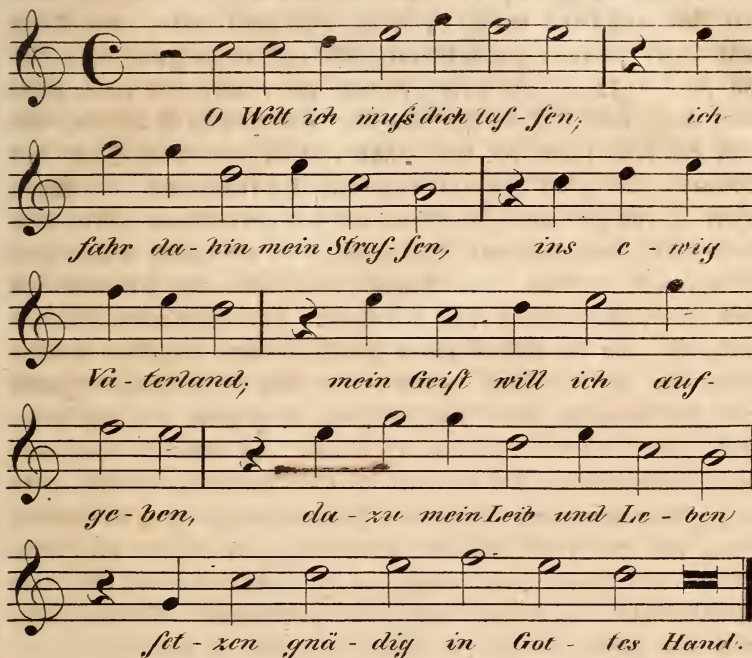 O Welt ich muſs dich laſ-ſen; ich
fahr da-hin mein Straſ-ſen, ins e-wig
Va-terland; mein Geiſt will ich auf-
ge-ben, da-zu mein Leib und Le-ben
ſet-zen gnä-dig in Got-tes Hand.